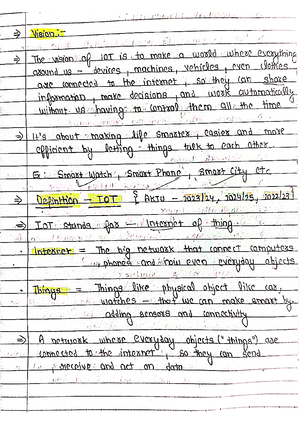 ⇒ Vision :-
⇒ The vision of IOT is to make a world where everything
around us – devices, machines, vehicles, even clothes
are connected to the internet, so they can share
information, make decisions, and work automatically
without us having to control them all the time
⇒ It's about making life smarter, easier and more
efficient by letting things talk to each other.
Smart Watch, Smart Phone, Smart City etc
⇒ Definition – IOT { AKTU – 2023/24, 2024/25, 2022/23 }
⇒ IOT stands for – Internet of thing
Internet = The big network that connect computers
, phones and now even everyday objects
Things = Things like physical object like car,
watches – that we can make smart by
adding sensors and connectivity
⇒ A network where everyday objects ("things") are
connected to the internet, so they can send
, receive and act on data